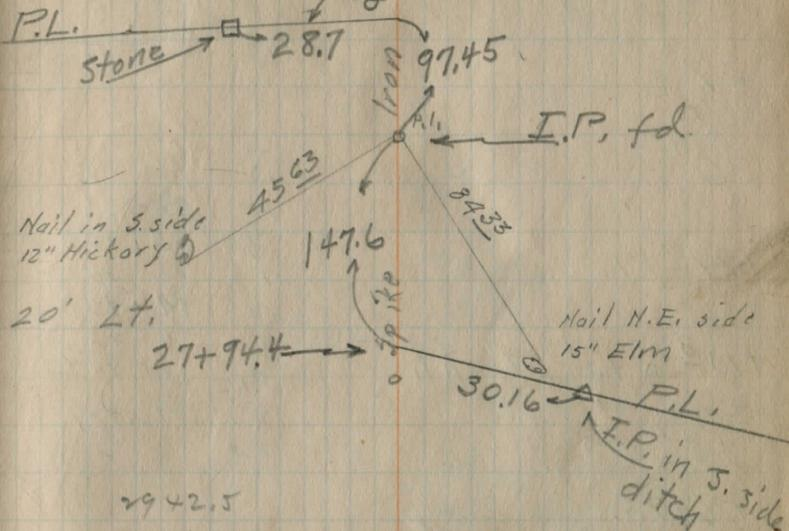 P.L.
Stone
28.7
Iron
97.45
P.I.
I.P. fd.
45 63
84 33
Nail in S. side
12" Hickory
147.6
20' Lt.
Spike
Nail N.E. side
15" Elm
27+94.4
30.16
P.L.
I.P. in S. side
ditch
2942.5